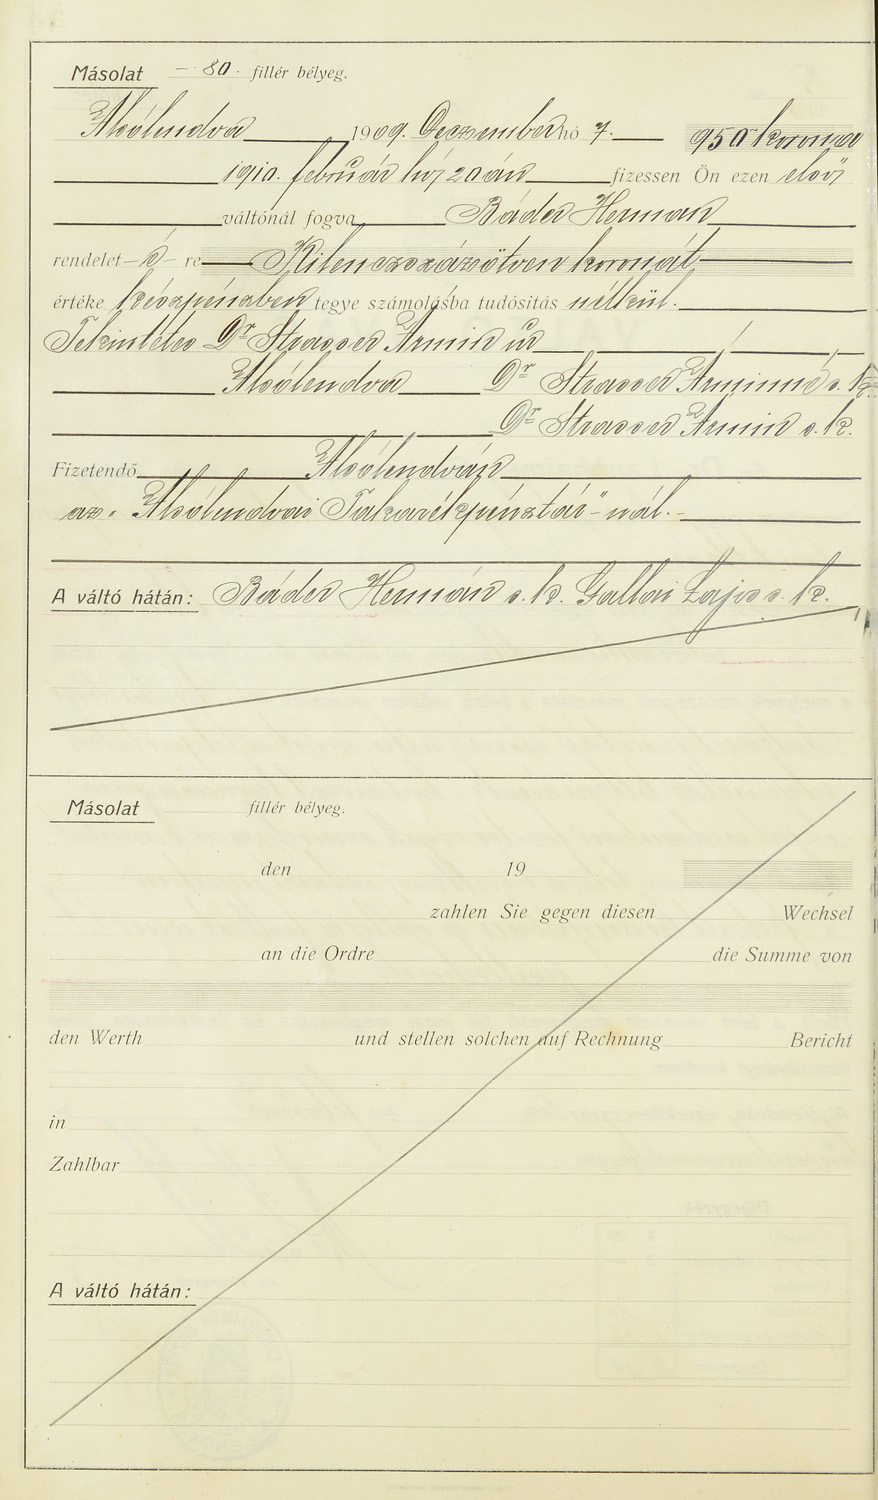 Másolat – 80. fillér bélyeg.
Alsólendva 1909. Deczember hó 7. 950 korona
1910. február hó 20 án fizessen Ön ezen első
váltónál fogva Báder Herman
rendelet – é – re Kilenczszázötven koronát
értéke készpénzben tegye számolásba tudósítás nélkül.
Tekintetes Dr Strasser Ármin úr
Alsólendva Dr Strasser Árminné s. k.
Dr Strasser Ármin s. k.
Fizetendő Alsólendván
az „Alsólendvai Takarékpénztár"-nál. –
A váltó hátán: Báder Hermán s. k. Gallai Lajos s. k.
Másolat fillér bélyeg.
den 19
zahlen Sie gegen diesen Wechsel
an die Ordre die Summe von
den Werth und stellen solchen auf Rechnung Bericht
in
Zahlbar
A váltó hátán: